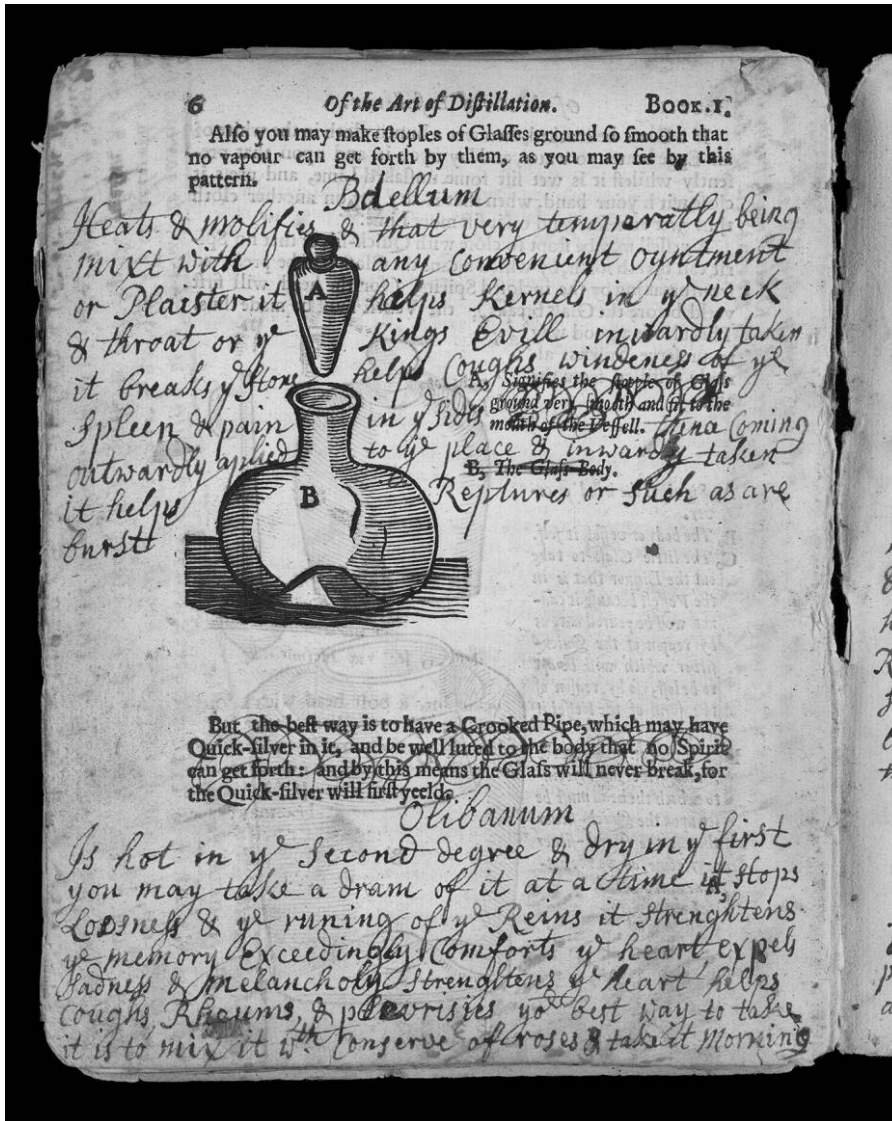 6 Of the Art of Distillation. BOOK.1.
Also you may make stoples of Glasses ground so smooth that
no vapour can get forth by them, as you may see by this
pattern.
Bdellum
Heats & molifies & that very temperatly being
mixt with any Convenient oyntment
or Plaister it helps Kernels in yᵉ neck
& throat or yᵉ Kings Evill inwardly taken
it breaks yᵉ stone helps Coughs windeness of yᵉ
A, Signifies the stopple of Glass
ground very smooth and fit to the
mouth of the Vessell.
Spleen & pain in yᵉ sides Coming
outwardly aplied to yᵉ place & inwardly taken
B, The Glass-Body.
it helps Reptures or such as are
burst
A
B
But the best way is to have a Crooked Pipe, which may have
Quick-silver in it, and be well luted to the body that no Spirit
can get forth: and by this means the Glass will never break, for
the Quick-silver will first yeeld.
Olibanum
Is hot in yᵉ second degree & dry in yᵉ first
you may take a dram of it at a time it stops
Loosness & yᵉ runing of yᵉ Reins it strenghtens
yᵉ memory Exceedingly Comforts yᵉ heart expels
sadness & melancholy strenghtens yᵉ heart helps
Coughs, Rheums, & plewrisies yoʳ best way to take
it is to mix it wᵗʰ Conserve of roses & take it Morning